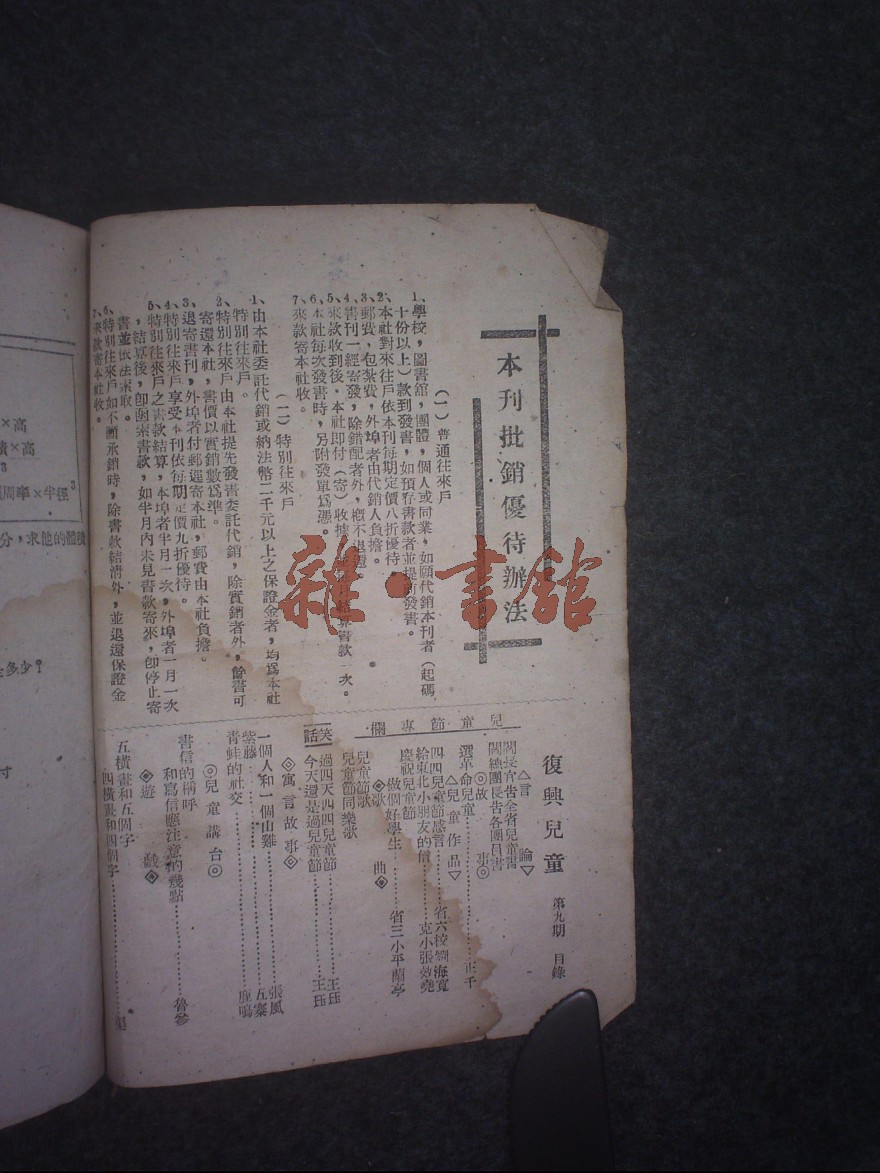 本刊批銷優待辦法
(一)普通往來戶
1、學校,圖書舘,團體,個人或同業,如願代銷本刊者(起碼
十份以上)款到發書,如預存書款者並提前發書。
2、本社對來往戶依本刊每期定價八折優待
3、郵費,包紮費,外埠者由代銷人負擔。
4、書刊一經寄發,除錯配者外,概不退還
5、來款收到後,本社即付(寄)收據,並 結算書款一次。
6、本社每次發書時,另附發單爲憑。
7、來款寄本社收。
(二)特別往來戶
1、由本社委託代銷或納法幣二千元以上之保證金者,均爲本社
特別往來戶。
2、特別往來戶由本社提先發書委託代銷,除實銷者外,餘書可
寄還本社,書價以實銷數爲準。
3、退寄書刊,外埠者付郵還寄本社,郵費由本社負擔。
4、特別往來戶享受本刊依每期定價九折優待。
5、特別往來戶之書款結算,本埠者半月一次,外埠者一月一次
,結算後,即函索書款,如半月內未見書款寄來,即停止寄
書並依法索取。
6、特別往來戶如不願承銷時,除書款結清外,並退還保證金
7、來款寄本社收。
復興兒童 第九期 目錄
△言論▽
閻長官告全省兒童書
閻總團長告各團員書
◎故事◎
選革命兒童……正千
兒童節專欄
△兒童作品▽
四四兒童節感言……省六校劉海寬
給東北小朋友的信……克小張效堯
慶祝兒童節
做個好學生……省三小平蘭亭
◈歌曲◈
兒童節歌
兒童節同樂歌
笑話
過四天四四兒童節……王珏
今天還是過兒童節……王珏
◇寓言故事◇
一個人和一個山雞……張風
紫藤……五寨
青蛙的社交……鹿鳴
◎兒童講台◎
書信的稱呼
和寫信應注意的幾點……魯參
◈遊戲◈
五橫畫和五個字
四橫畫和四個字……
×高
積×高
3
圓周率×半徑3
分,求他的體積
多少?
寸
雜·書館